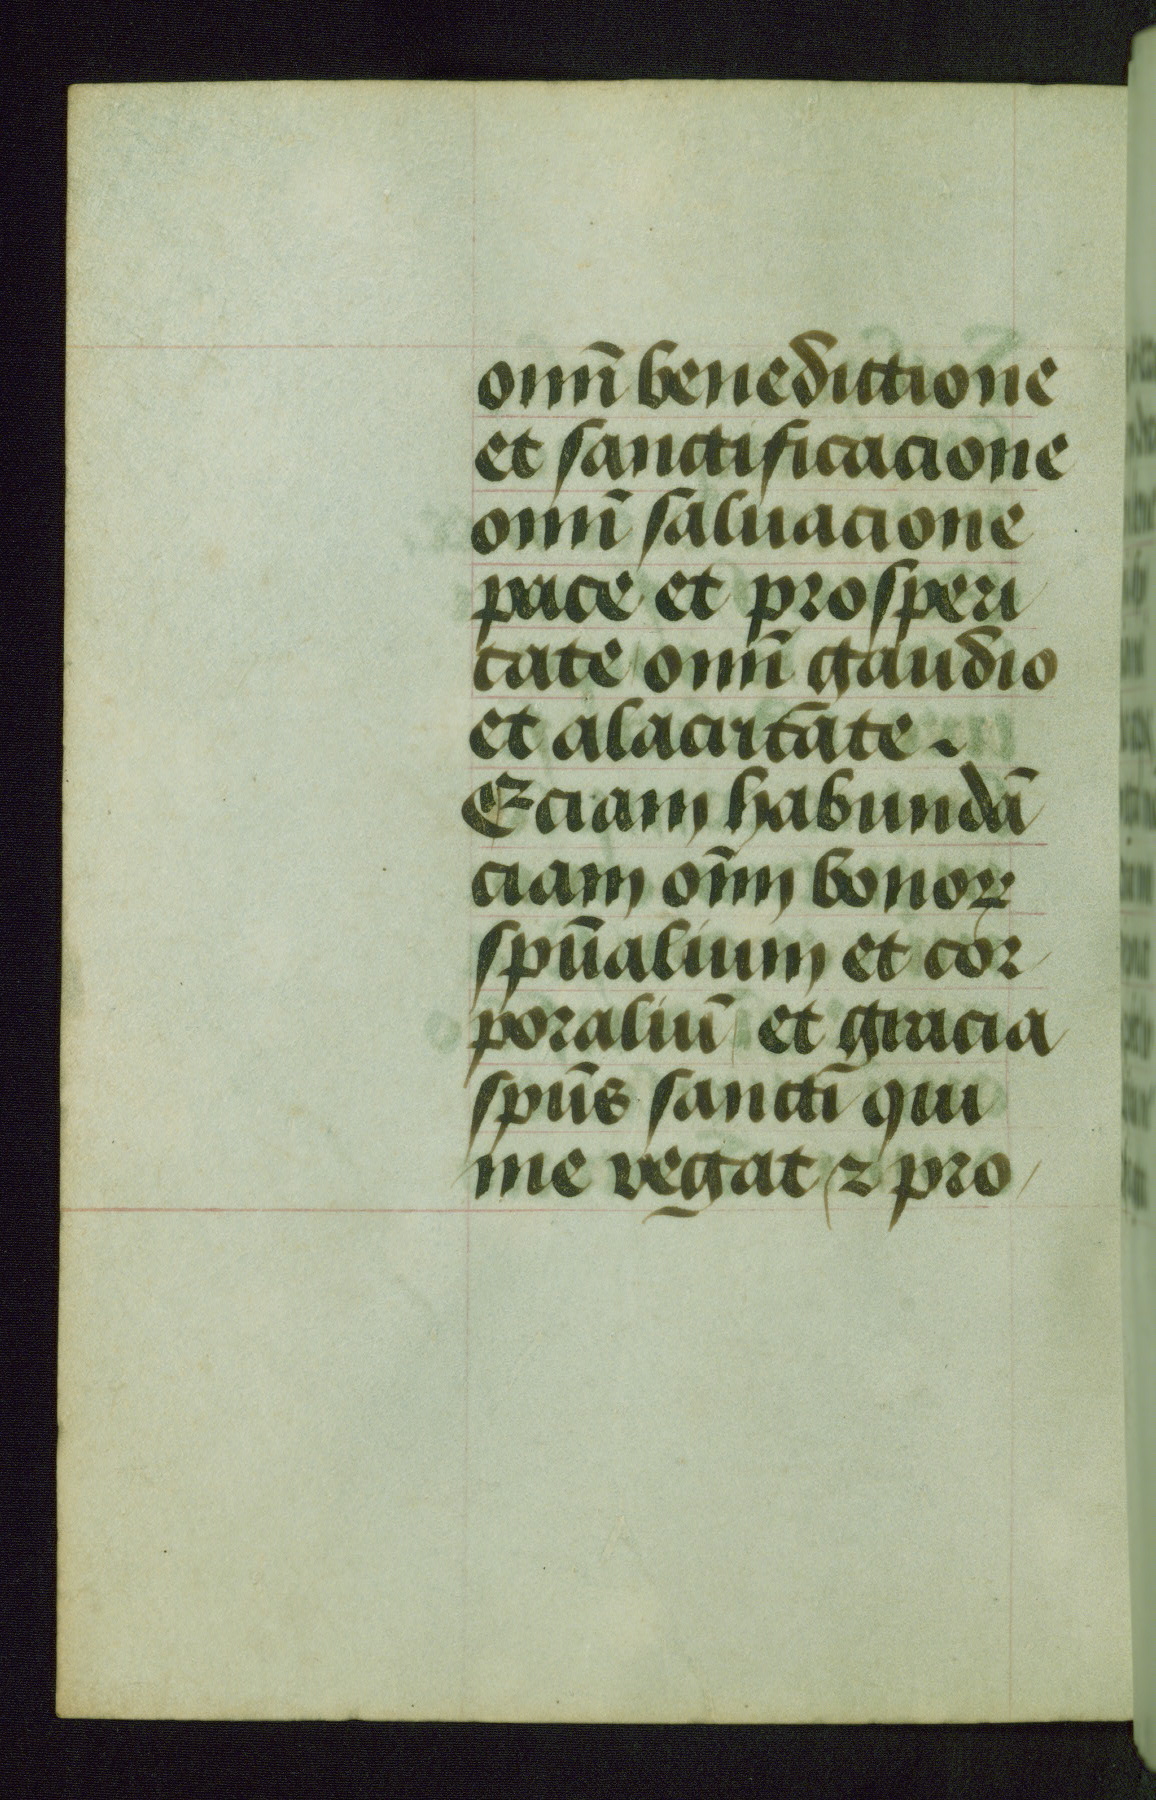 om̄i benedictione
et sanctificacione
om̄i saluacione
pace et prosperi
tate om̄i gaudio
et alacritate.
Eciam habundā
ciam om̄i bonoꝝ
spūalium et cor
poraliū et gracia
spūs sancti qui
me regat ⁊ pro